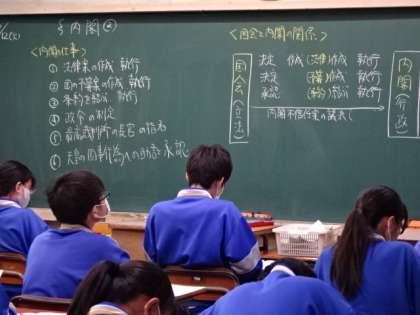 12(火)
§ 内閣②
〈内閣の仕事〉
① 法律案の作成 執行
② 国の予算案の作成 執行
③ 条約を締結 執行
④ 政令の制定
⑤ 最高裁判所の長官の指名
⑥ 天皇の国事行為への助言と承認
〈国会と内閣の関係〉
国会(立法)
決定 作成(法律) 執行
決定 (予算) 執行
承認 (条約) 締結 執行
内閣不信任案の議決
内閣(行政)